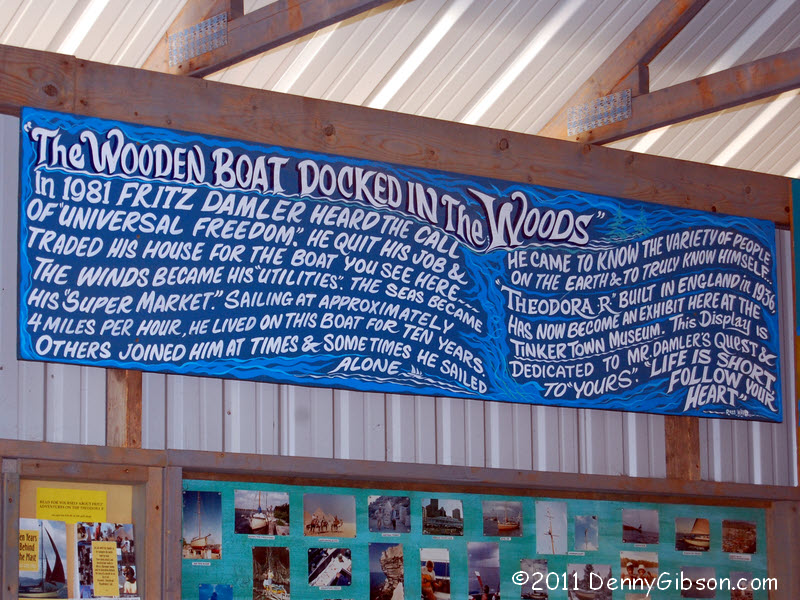 "The WOODEN BOAT DOCKED IN The WOODS"
In 1981 FRITZ DAMLER HEARD THE CALL
OF "UNIVERSAL FREEDOM." HE QUIT HIS JOB &
TRADED HIS HOUSE FOR THE BOAT YOU SEE HERE.
THE WINDS BECAME HIS "UTILITIES". THE SEAS BECAME
HIS "SUPER MARKET." SAILING AT APPROXIMATELY
4 MILES PER HOUR, HE LIVED ON THIS BOAT FOR TEN YEARS.
OTHERS JOINED HIM AT TIMES & SOMETIMES HE SAILED
ALONE
HE CAME TO KNOW THE VARIETY OF PEOPLE
ON THE EARTH & TO TRULY KNOW HIMSELF.
"THEODORA R" BUILT IN ENGLAND in 1936,
HAS NOW BECOME AN EXHIBIT HERE AT THE
TINKER TOWN MUSEUM. THIS DISPLAY IS
DEDICATED TO MR. DAMLER'S QUEST &
TO "YOURS". "LIFE IS SHORT,
FOLLOW YOUR
HEART"
Ten Years
Behind
the Mast
©2011 DennyGibson.com